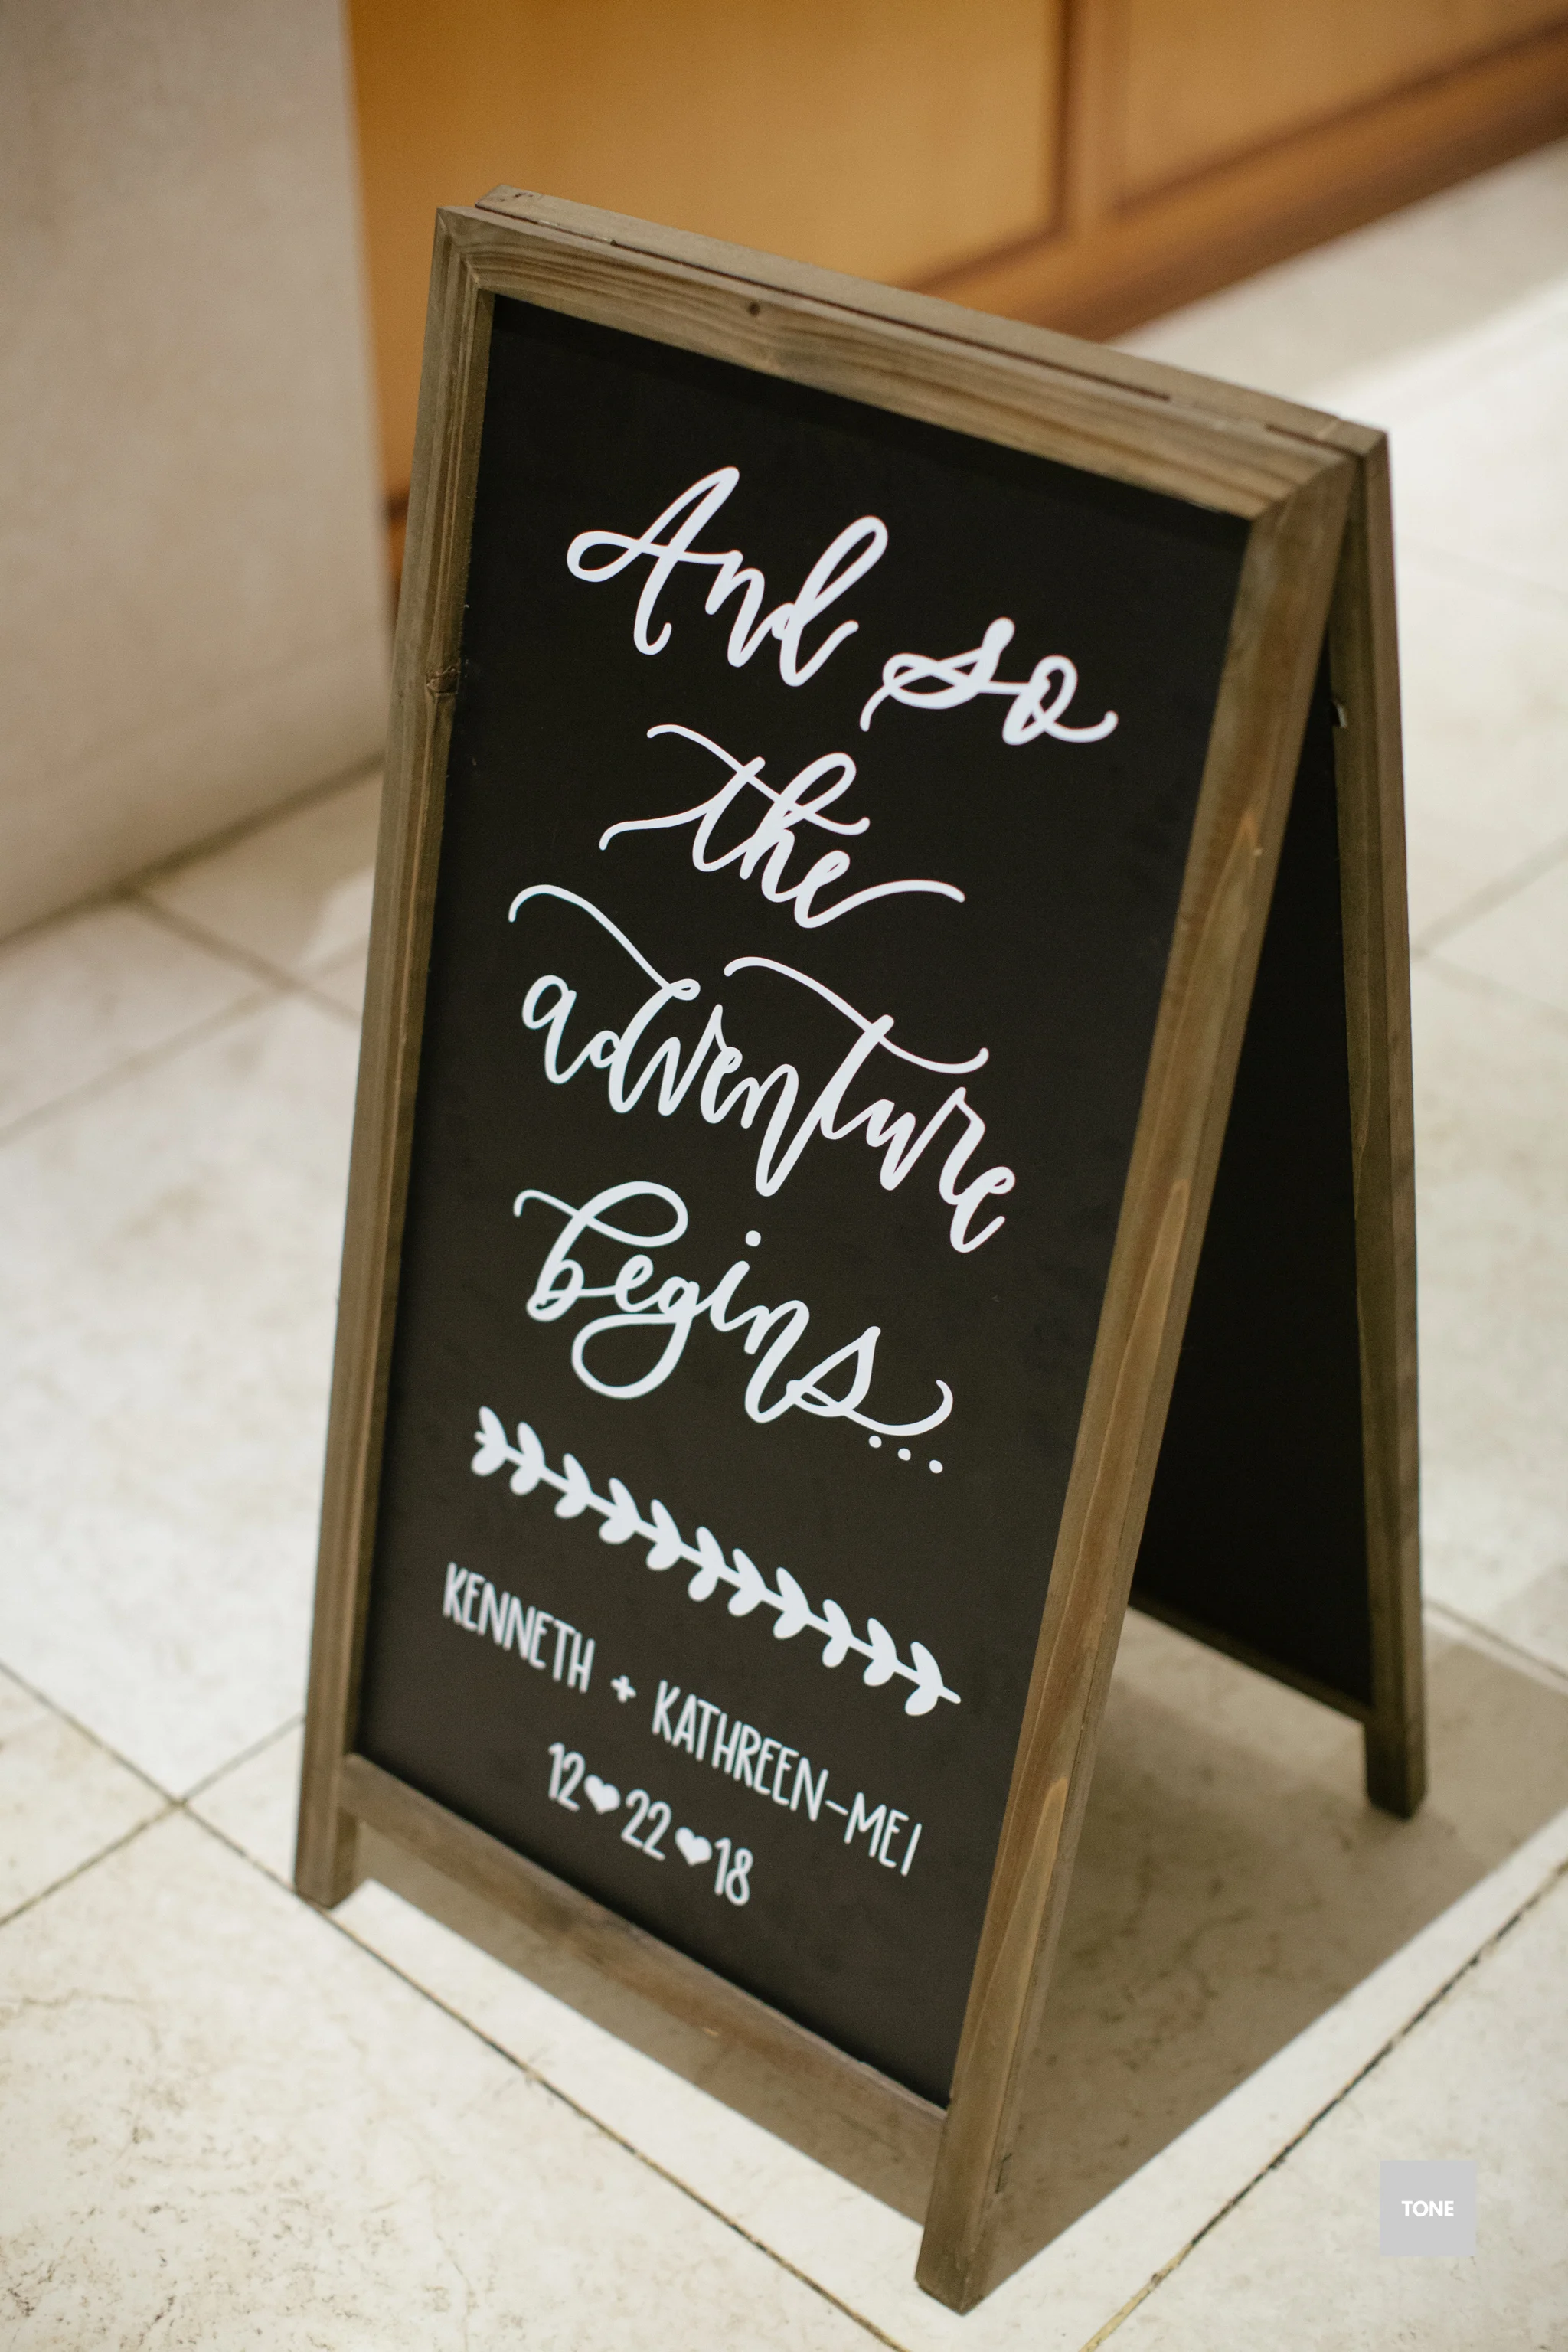 And so
the
adventure
begins...
KENNETH + KATHREEN-MEI
12♥22♥18
TONE